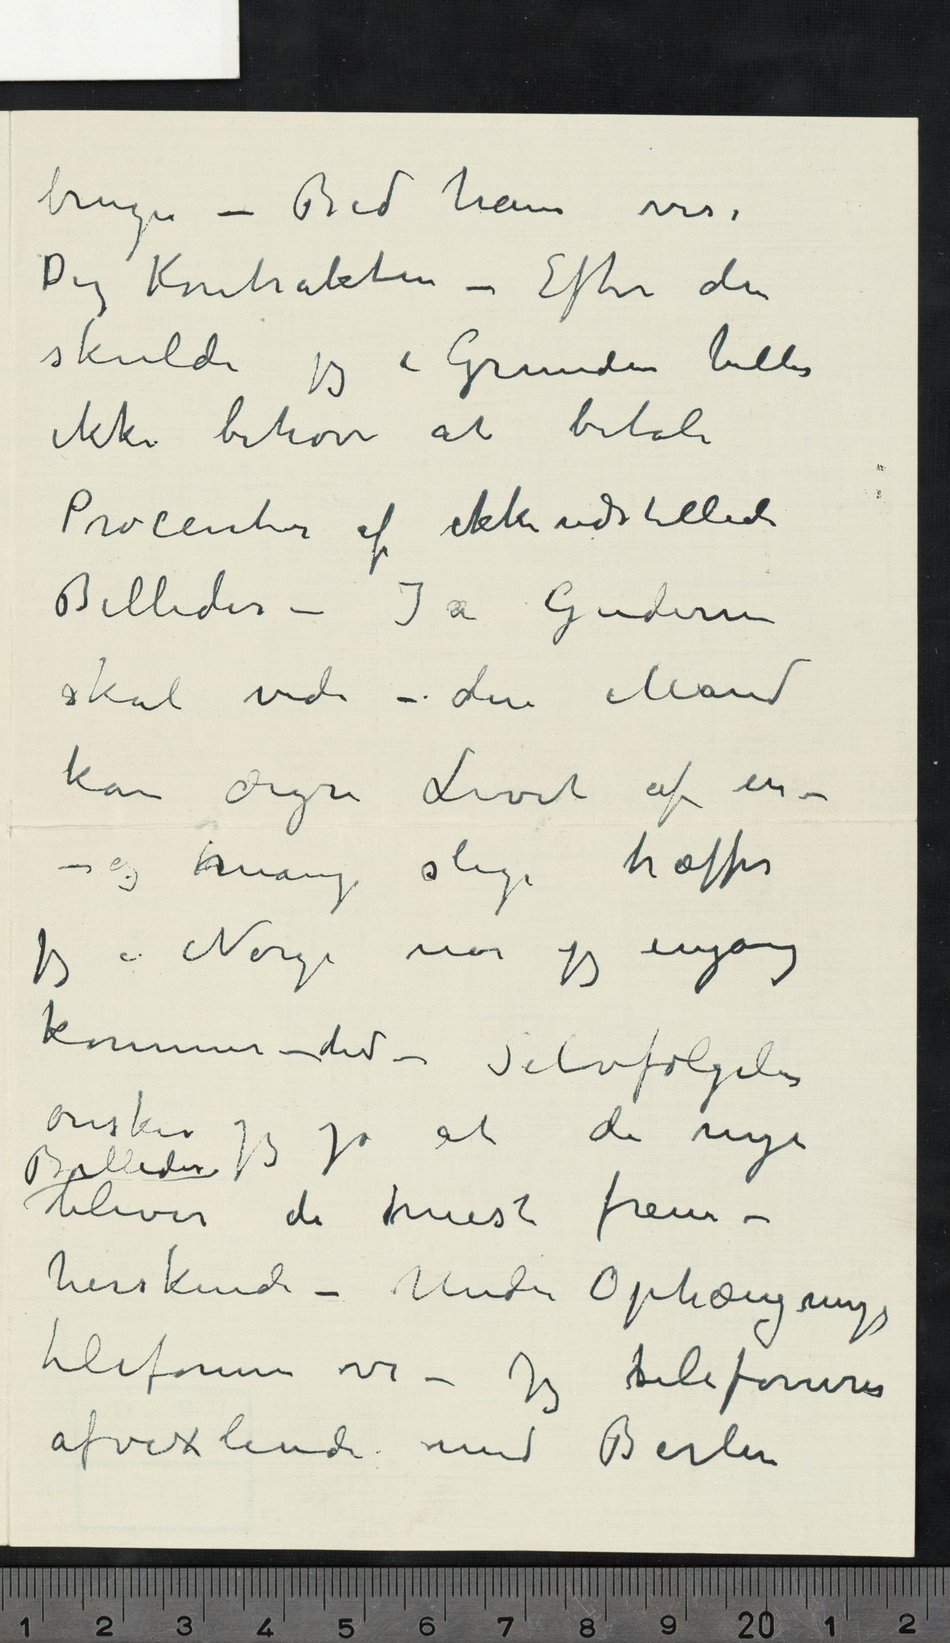 bruge – Bed ham vise
Dig Kontrakten – Efter den
skulde jeg i Grunden heller
ikke behøve at betale
Procenter af ikke udstillede
Billeder – Ja Guderne
skal vide – den Mand
kan ærgre Livet af en –
– og mange slige træffer
jeg i Norge når jeg engang
kommer – did – Selvfølgelig
ønsker jeg jo at de nye
Billeder
bliver de mest frem –
herskende – Under Ophængnings
telefonerer vi – Jeg telefonerer
afvexlende med Berlin
1 2 3 4 5 6 7 8 9 20 1 2